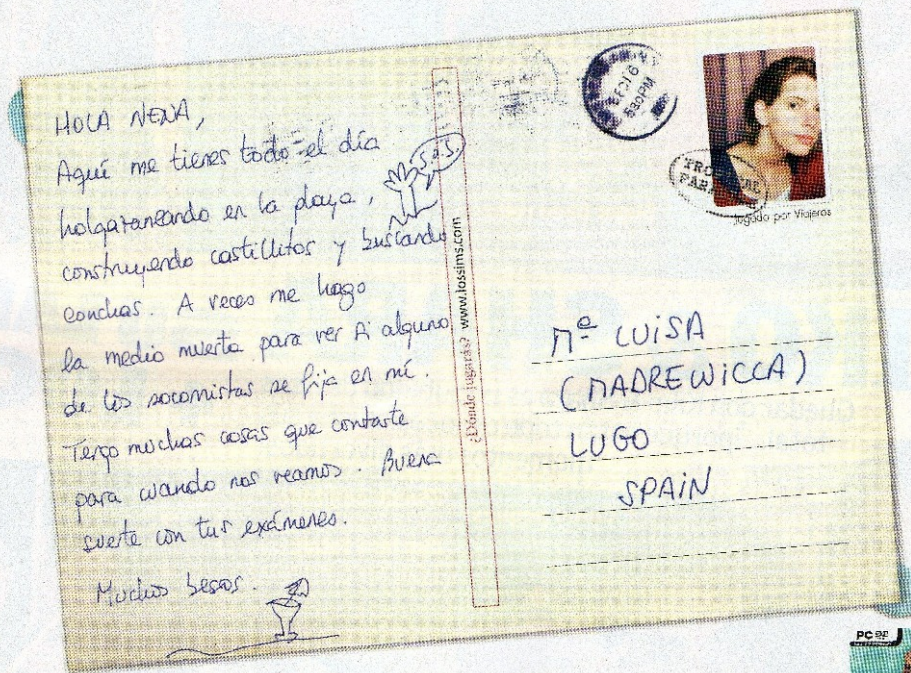 HOLA NENA,
Aquí me tienes todo el día
holgazaneando en la playa,
construyendo castillitos y buscando
conchas. A veces me hago
la medio muerta para ver si alguno
de los socorristas se fija en mí.
Tengo muchas cosas que contarte
para cuando nos veamos. Buena
suerte con tus exámenes.
Muchos besos.
S.O.S.
¿Dónde jugarás? www.lossims.com
630PM
TROPICAL
Jugado por Viajeros
Mª LUISA
(MADREWICCA)
LUGO
SPAIN
PC